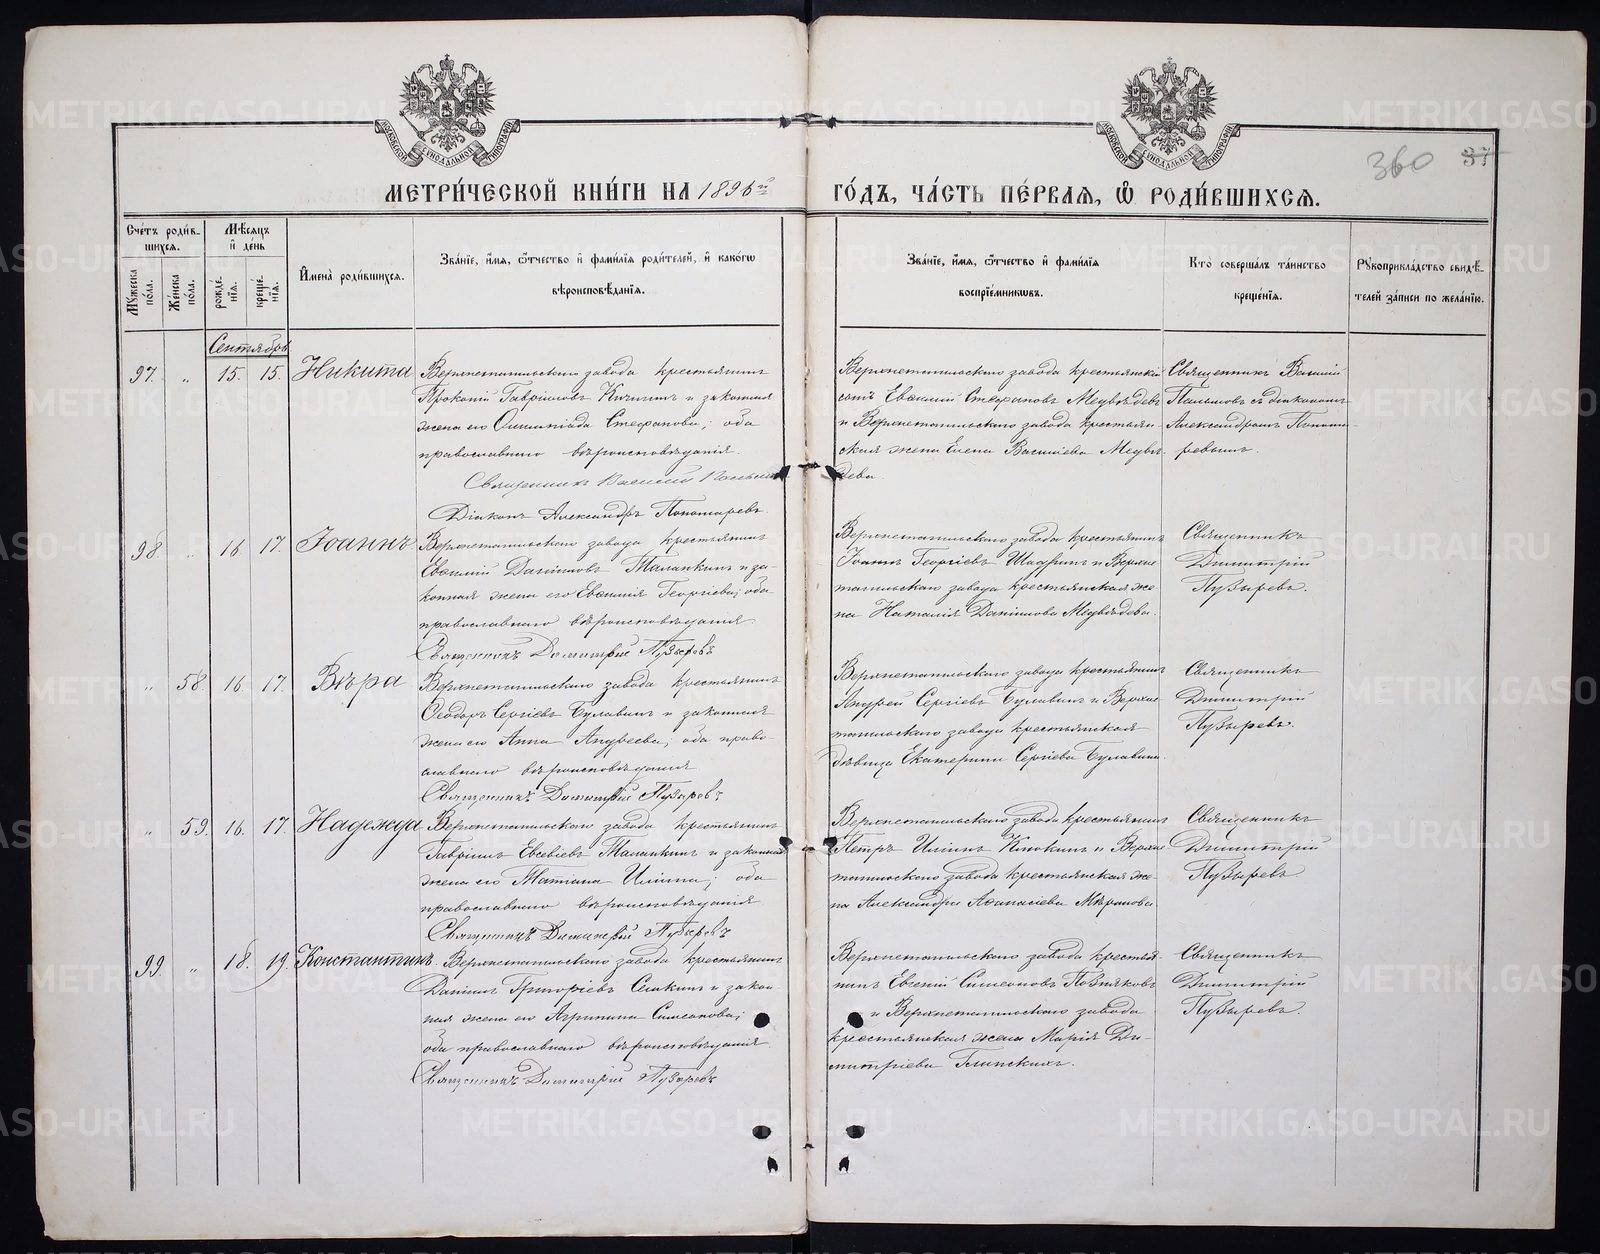 МОСКОВСКОЙ СѴНОДАЛЬНОЙ ТИПОГРАФІИ
МОСКОВСКОЙ СѴНОДАЛЬНОЙ ТИПОГРАФІИ
360 37
МЕТРИ́ЧЕСКОЙ КНИ́ГИ НА 1896й ГО́ДЪ, ЧА́СТЬ ПЕ́РВАЯ, Ѽ РОДИ́ВШИХСѦ.
Сче́тъ роди́вшихсѧ.
Мꙋ́жеска по́ла.
Же́нска по́ла.
Мѣ́сѧцъ и҆ де́нь
рожде́нїѧ.
креще́нїѧ.
И҆мена̀ роди́вшихсѧ.
Зва́нїе, и҆́мѧ, ѻ҆́тчество и҆ фами́лїѧ роди́телей, и҆ како́гѡ
вѣроисповѣ́данїѧ.
Зва́нїе, и҆́мѧ, ѻ҆́тчество и҆ фами́лїѧ
воспрїе́мникѡвъ.
Кто̀ соверша́лъ та́инство
креще́нїѧ.
Рꙋкоприкла́дство свидѣ́-
телей за́писи по жела́нїю.
Сентябрь
97. „ 15. 15. Никита
Верхнетагильскаго завода крестьянинъ
Прокопій Гавріиловъ и законная
жена его Олимпіада Стефанова; оба
православнаго вѣроисповѣданія.
Священникъ Василій
Діаконъ Александръ Пономаревъ.
Верхнетагильскаго завода крестьянскій
сынъ Евѳимій Стефановъ Медвѣдевъ
и Верхнетагильскаго завода крестьян-
ская жена Елена Васильева Медвѣ-
дева.
Священникъ Василій
съ діакономъ
Александромъ Понома-
ревымъ.
98. „ 16 17. Іоаннъ
Верхнетагильскаго завода крестьянинъ
Евѳимій Даніиловъ Маланкинъ и за-
конная жена его Евѳимія Георгіева; оба
православнаго вѣроисповѣданія
Священникъ Димитрій Пузыревъ
Верхнетагильскаго завода крестьянинъ
Іоаннъ Георгіевъ Шадринъ и Верхне-
тагильскаго завода крестьянская же-
на Наталія Даніилова Медвѣдева.
Священникъ
Димитрій
Пузыревъ.
„ 58. 16. 17. Вѣра
Верхнетагильскаго завода крестьянинъ
Ѳеодоръ Сергіевъ Булавинъ и законная
жена его Анна Андреева; оба право-
славнаго вѣроисповѣданія
Священникъ Димитрій Пузыревъ
Верхнетагильскаго завода крестьянинъ
Андрей Сергіевъ Булавинъ и Верхне-
тагильскаго завода крестьянская
дѣвица Екатерина Сергіева Булавина.
Священникъ
Димитрій
Пузыревъ.
„ 59. 16. 17. Надежда
Верхнетагильскаго завода крестьянинъ
Гавріилъ Евсевіевъ Маланкинъ и законная
жена его Татіана Ильина; оба
православнаго вѣроисповѣданія
Священникъ Димитрій Пузыревъ
Верхнетагильскаго завода крестьянинъ
Петръ Ильинъ и Верхне-
тагильскаго завода крестьянская же-
на Александра Аѳанасіева
Священникъ
Димитрій
Пузыревъ
99. „ 18. 19. Константинъ.
Верхнетагильскаго завода крестьянинъ
Даніилъ Григоріевъ и закон-
ная жена его Агрипина Симеонова;
оба православнаго вѣроисповѣданія
Священникъ Димитрій Пузыревъ
Верхнетагильскаго завода крестья-
нинъ Евгеній Симеоновъ Поздняковъ
и Верхнетагильскаго завода
крестьянская жена Марія Ди-
митріева Глинскихъ.
Священникъ
Димитрій
Пузыревъ.
METRIKI.GASO-URAL.RU